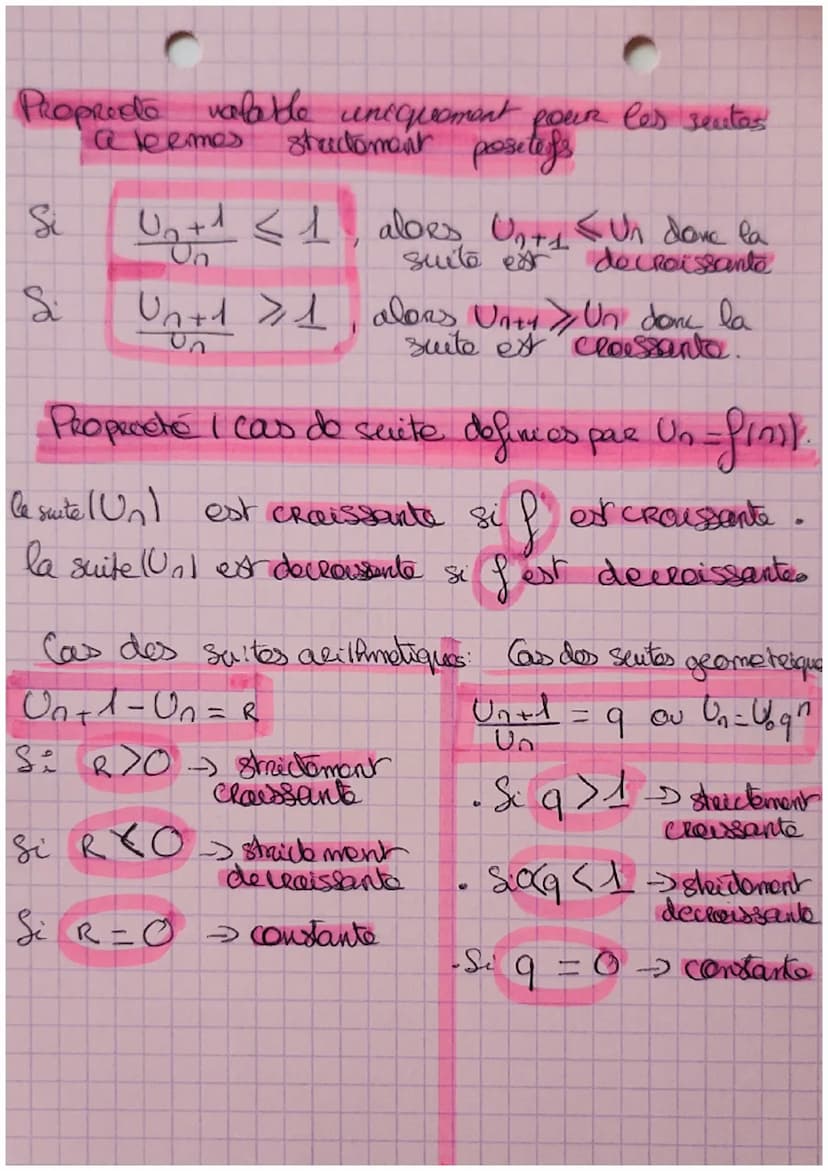 Propriété valable uniquement pour les suites
à termes strictement positifs
Si Un+1/Un ≤ 1, alors Un+1 ≤ Un donc la
suite est décroissante
Si Un+1/Un ≥ 1, alors Un+1 ≥ Un donc la
suite est croissante.
Propriété (cas de suite définies par Un = f(n)).
la suite (Un) est croissante si f est croissante.
la suite (Un) est decroissante si f est decroissante.
Cas des suites arithmetiques:
Un+1 - Un = R
Si R>0 → strictement
croissante
Si R<0 → strictement
decroissante
Si R=0 → constante
Cas des suites geometrique
Un+1/Un = q ou Un = U0q^n
. Si q>1 → strictement
croissante
. Si 0<q<1 → strictement
decroissante
. Si q = 0 → constante